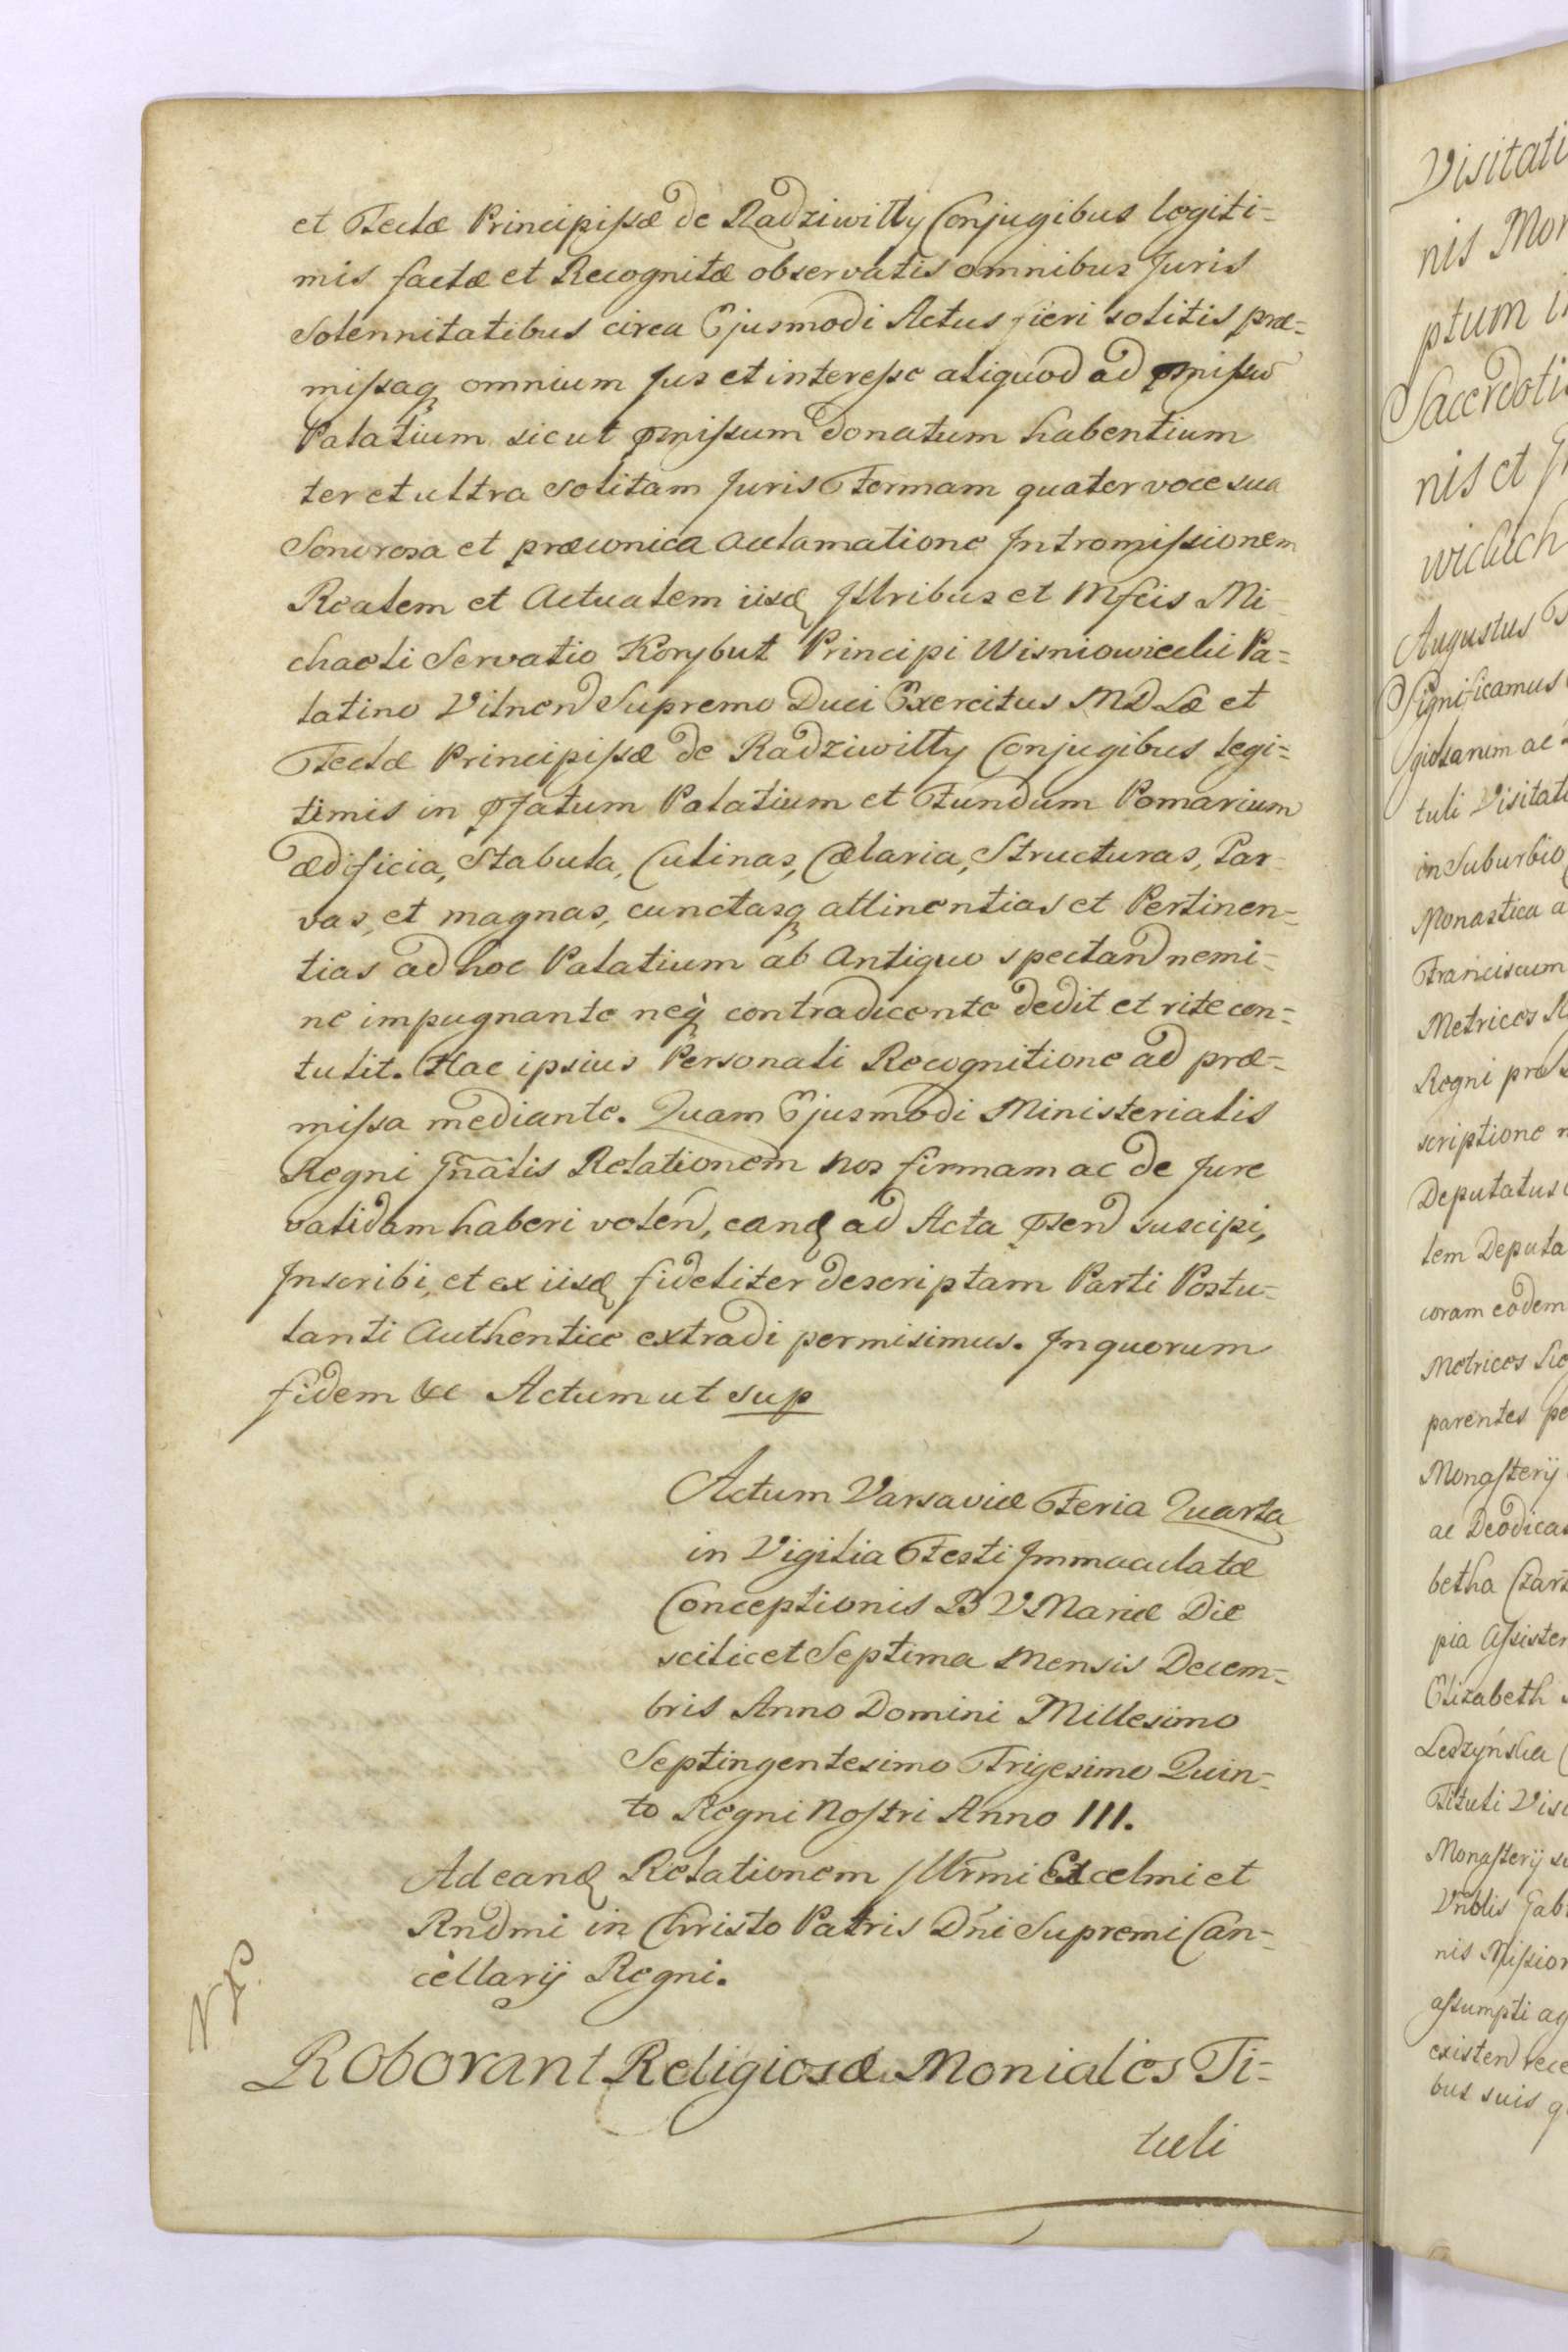 et Teclæ Principissæ de Radziwiłły Conjugibus legiti=
mis factæ et Recognitæ observatis omnibus Juris
Solennitatibus circa Ejusmodi Actus fieri solitis præ=
missaq omnium Jus et interesse aliquod ad pmissū
Palatium sicut pmissum donatum habentium
ter et ultra solitam Juris Formam quater voce sua
Sonorosa et præconica acclamatione Intromissionem
Realem et Actualem iisd Illribus et Mfcis Mi=
chaeli Servatio Korybut Principi Wisniowiecki Pa=
latino Vilnen Supremo Duci Exercitus M D L æ et
Teclæ Principissæ de Radziwiłły Conjugibus legi=
timis in pfatum Palatium et Fundum Pomarium
ædificia, Stabula, Culinas, Cælaria, Structuras, Par=
vas, et magnas, cunctasq attinentias et Pertinen=
tias ad hoc Palatium ab Antiquo spectand nemi=
ne impugnante neq contradicente dedit et rite con=
tulit. Hac ipsius Personali Recognitione ad præ=
missa mediante. Quam Ejusmodi Ministerialis
Regni Gn̄alis Relationem nos firmam ac de Jure
validam haberi volen, eand ad Acta psen suscipi,
Inscribi, et ex iisd fideliter descriptam Parti Postu=
lanti Authentice extradi permisimus. In quorum
fidem &c Actum ut sup
Actum Varsaviæ Feria Quarta
in Vigilia Festi Immaculatæ
Conceptionis B V Mariæ Die
scilicet Septima Mensis Decem=
bris Anno Domini Millesimo
Septingentesimo Trigesimo Quin=
to Regni Nostri Anno III.
Ad eand Relationem Illr̄mi Excelmi et
Rndmi in Christo Patris Dn̄i Supremi Can=
cellarij Regni.
Roborant Religiosæ Moniales Ti=
tuli
Visitati
nis Mon
ptum i
Sacerdoti
nis et
wickich
Augustus
Significamus
giosarum ac
tuli Visitati
in Suburbio
Monastica a
Franciscum
Metrices
Regni præ
scriptione
Deputatus
tem Deputa
coram eodem
Metrices
parentes pe
Monasterij
ac Deodicat
betha Czar
pia Assisten
Elizabeth
Leszyńska
Tituli Visi
Monasterij
Vn̄blis Gab
nis Mission
assumpti
existen rece
bus suis q